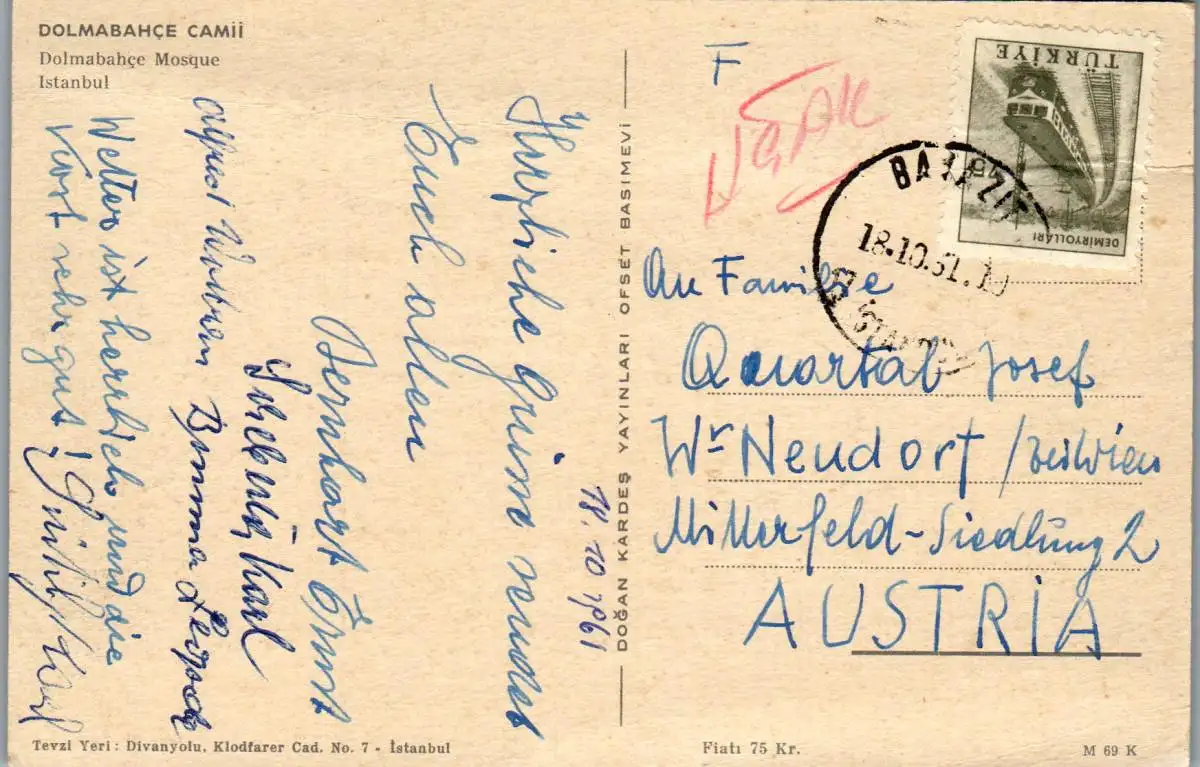 DOLMABAHÇE CAMİİ
Dolmabahçe Mosque
Istanbul
18.10.1961
Herzliche Grüße sendet
Euch allen
Bernhart Ernst
Karl
Alfred
Wetter ist herrlich und die
Kost sehr gut!
DOĞAN KARDEŞ YAYINLARI OFSET BASIMEVİ
F
UÇAK
TÜRKİYE
DEMİRYOLLARI
BAYAZIT
18.10.61.19
İSTANBUL
An Familie
Quartal Josef
Wr Neudorf / bei Wien
Mitterfeld-Siedlung 2
AUSTRIA
Tevzi Yeri : Divanyolu, Klodfarer Cad. No. 7 - İstanbul
Fiatı 75 Kr.
M 69 K